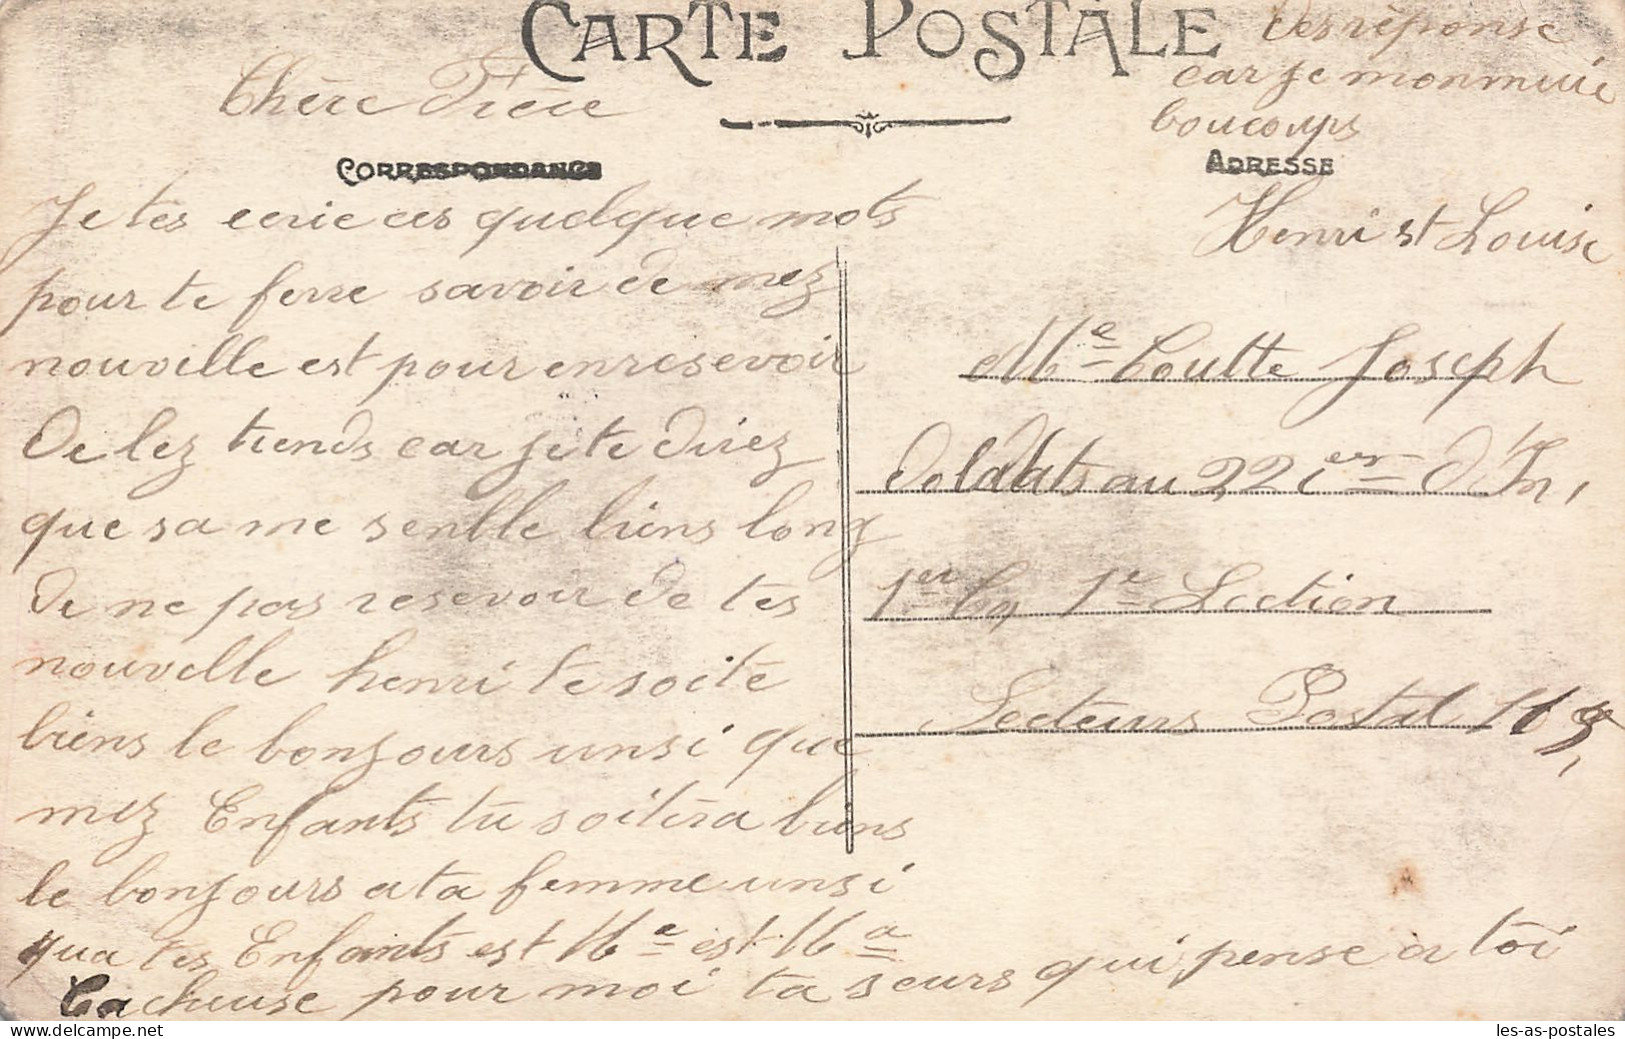 CARTE POSTALE
Chère Frère
CORRESPONDANCE
Je tes ecrie ces quelque mots
pour te ferre savoir de mez
nouvelle est pour enresevoir
De lez tiends car je te direz
que sa me senble biens long
de ne pas resevoir de tes
nouvelle henri te soite
biens le bonjours unsi que
mez Enfants tu soitera biens
le bonjours a ta femme unsi
qua tes Enfants est Me est Ma
Cacheuse pour moi ta seurs qui pense a toi
des réponse
car je monnuie
boucoups
ADRESSE
Henri et Louise
Me Coutte Joseph
Soldats au 22 ier d'In,
1er Ca 1e Section
Secteurs Postal 115
les-as-postales